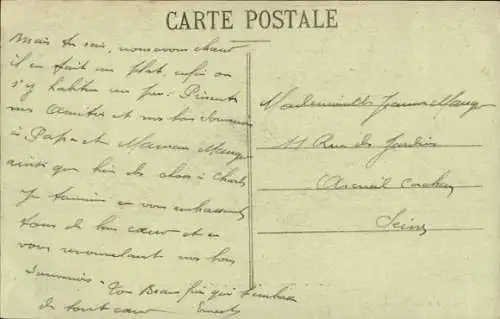 CARTE POSTALE
Mais tu sais, nous avons chaud
il en fait un plat, enfin on
s'y habitue un peu. Présente
mes amitiés et mes bons souvenirs
à Papa et Maman Mauge
ainsi que bien des choses à Charles
Je termine en vous embrassant
tous de bon cœur et en
vous renouvelant mes bons
souvenirs. Ton Beau frère qui t'embrasse
de tout cœur
Mademoiselle Jeanne Mauge
11 Rue des Jardins
Arcueil Cachan
Seine